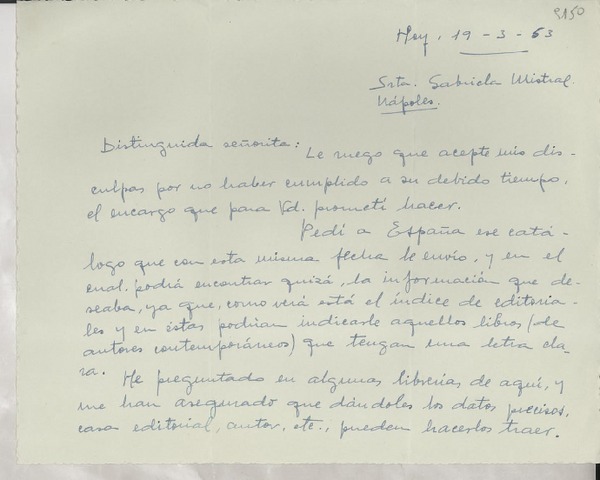 3150
Hoy, 19-3-53
Srta. Gabriela Mistral.
Nápoles.
Distinguida señorita:
Le ruego que acepte mis dis-
culpas por no haber cumplido a su debido tiempo,
el encargo que para Vd. prometí hacer.
Pedí a España ese catá-
logo que con esta misma fecha le envío, y en el
cual podrá encontrar quizá, la información que de-
seaba, ya que, como verá está el índice de editoria-
les y en éstas podrían indicarle aquellos libros (de
autores contemporáneos) que tengan una letra cla-
ra.
He preguntado en algunas librerías de aquí, y
me han asegurado que dándoles los datos precisos,
casa editorial, autor, etc., pueden hacerlos traer.